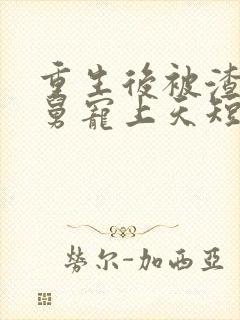 重生後被渣
舅寵上天短
勞尔-加西亞